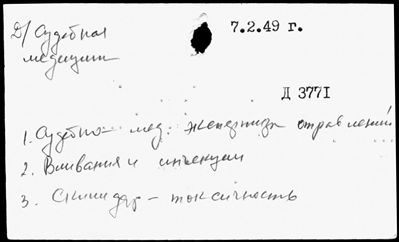 Д/ Судебная
медицина
7.2.49 г.
Д 3771
1. Судебно- мед. экспертиза отравлений
2. Вливания и инъекции
3. Скипидар - токсичность